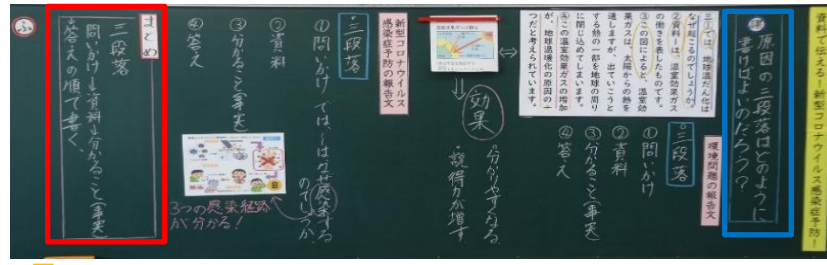 資料で伝える!新型コロナウイルス感染症予防!
原因の三段落はどのように
書けばよいのだろう?
環境問題の報告文
三段落
①問いかけ
②資料
③分かること(事実)
④答え
三①では、地球温だん化は
なぜ起こるのでしょうか。
②資料一は、温室効果ガス
の働きを表したものです。
③この図によると、温室効
果ガスは、太陽からの熱を
通しますが、出ていこうと
する熱の一部を地球の周り
に閉じ込めてしまいます。
④この温室効果ガスの増加
が、地球温暖化の原因の一
つだと考えられています。
⇔
⇓
効果
・分かりやすくなる
・説得力が増す
新型コロナウイルス
感染症予防の報告文
三段落
①問いかけ では、~はなぜ感染する
のでしょうか
②資料
③分かること(事実)
④答え
3つの感染経路
が分かる!
まとめ
三段落
問いかけ→資料→分かること(事実)
→答えの順で書く。
ふ